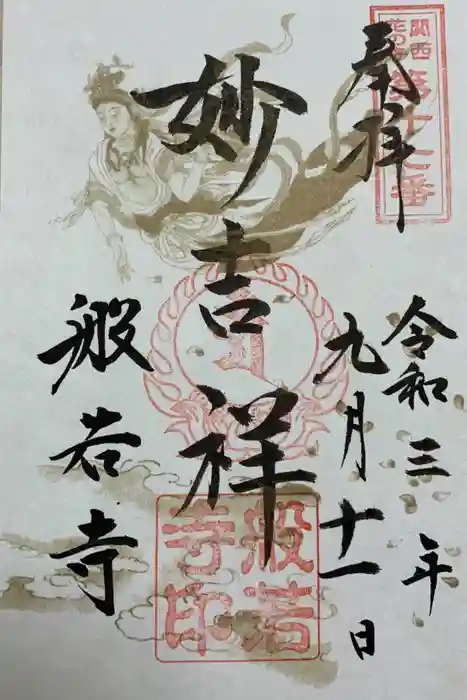 関西
花の寺
第十七番
奉拝
令和三年
九月十一日
妙吉祥
般若寺
般若
寺印